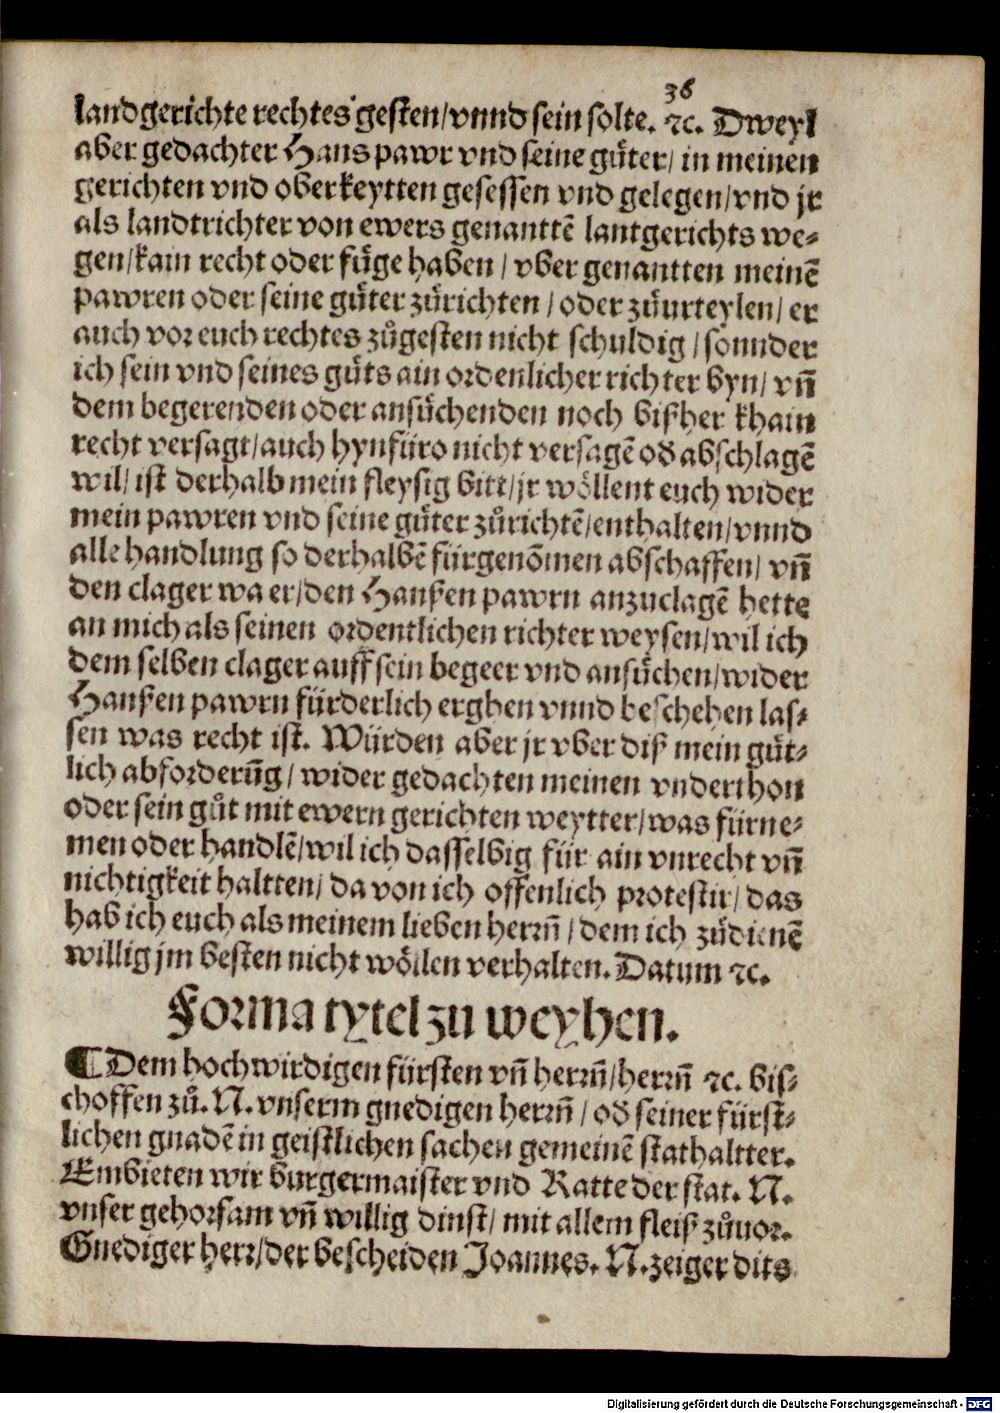 36
landgerichte rechtes gesten/vnnd sein solte. ꝛc. Dweyl
aber gedachter Hans pawr vnd seine guͤter/ in meinen
gerichten vnd oberkeytten gesessen vnd gelegen/vnd jr
als landtrichter von ewers genanttē lantgerichts we⸗
gen/kain recht oder fuͤge haben / vber genantten meinē
pawren oder seine guͤter zuͦrichten / oder zuͦurteylen/ er
auch vor euch rechtes zuͦgesten nicht schuldig / sonnder
ich sein vnd seines guͤts ain ordenlicher richter byn/ vn̄
dem begerenden oder ansuͤchenden noch bißher khain
recht versagt/auch hynfüro nicht versagē od abschlagē
wil/ ist derhalb mein fleysig bitt/jr woͤllent euch wider
mein pawren vnd seine guͤter zuͦrichtē/enthalten/vnnd
alle handlung so derhalbē fürgenōmen abschaffen/ vn̄
den clager wa er/den Hanßen pawrn anzuclagē hette
an mich als seinen ordentlichen richter weysen/wil ich
dem selben clager auff sein begeer vnd ansuͤchen/wider
Hanßen pawrn fürderlich erghen vnnd beschehen las⸗
sen was recht ist. Würden aber jr vber diß mein guͤt⸗
lich abforderūg / wider gedachten meinen vnderthon
oder sein guͦt mit ewern gerichten weytter/was fürne⸗
men oder handlē/wil ich dasselbig für ain vnrecht vn̄
nichtigkeit haltten/ da von ich offenlich protestir/ das
hab ich euch als meinem lieben herrn̄ / dem ich zuͦdienē
willig jm besten nicht woͤllen verhalten. Datum ꝛc.
Forma tytel zu weyhen.
¶ Dem hochwirdigen fürsten vn̄ herrn̄/herrn̄ ꝛc. bis⸗
choffen zuͦ. N. vnserm gnedigen herrn̄ / od seiner fürst⸗
lichen gnadē in geistlichen sachen gemeinē stathaltter.
Embieten wir burgermaister vnd Ratte der stat. N.
vnser gehorsam vn̄ willig dinst/ mit allem fleiß zuͦuor.
Gnediger herr/der bescheiden Joannes. N. zeiger dits
Digitalisierung gefördert durch die Deutsche Forschungsgemeinschaft - DFG